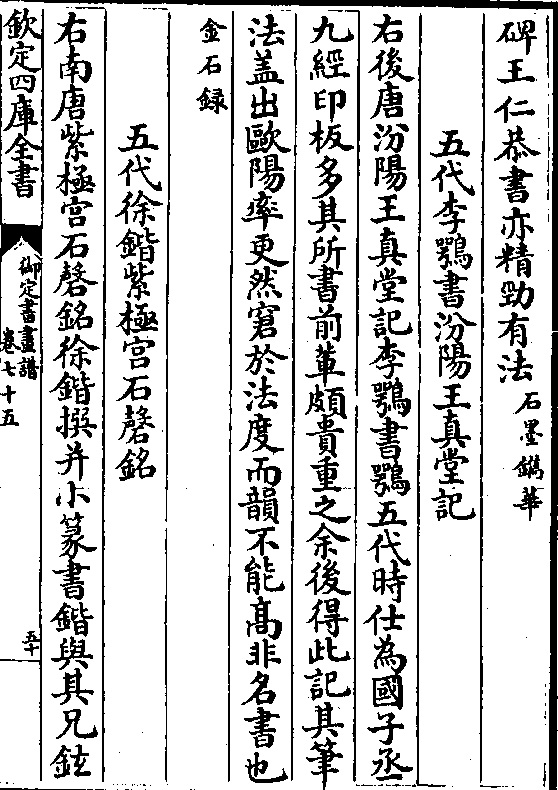 碑王仁恭書亦精勁有法石墨鐫華
五代李鶚書汾陽王真堂記
右後唐汾陽王真堂記李鶚書鶚五代時仕為國子丞
九經印板多其所書前輩頗貴重之余後得此記其筆
法盖出歐陽率更然窘於法度而韻不能髙非名書也
金石録
五代徐鍇紫極宫石磬銘
右南唐紫極宫石磬銘徐鍇撰并小篆書鍇與其兄鉉
欽定四庫全書
御定書畫譜
卷七十五
五十